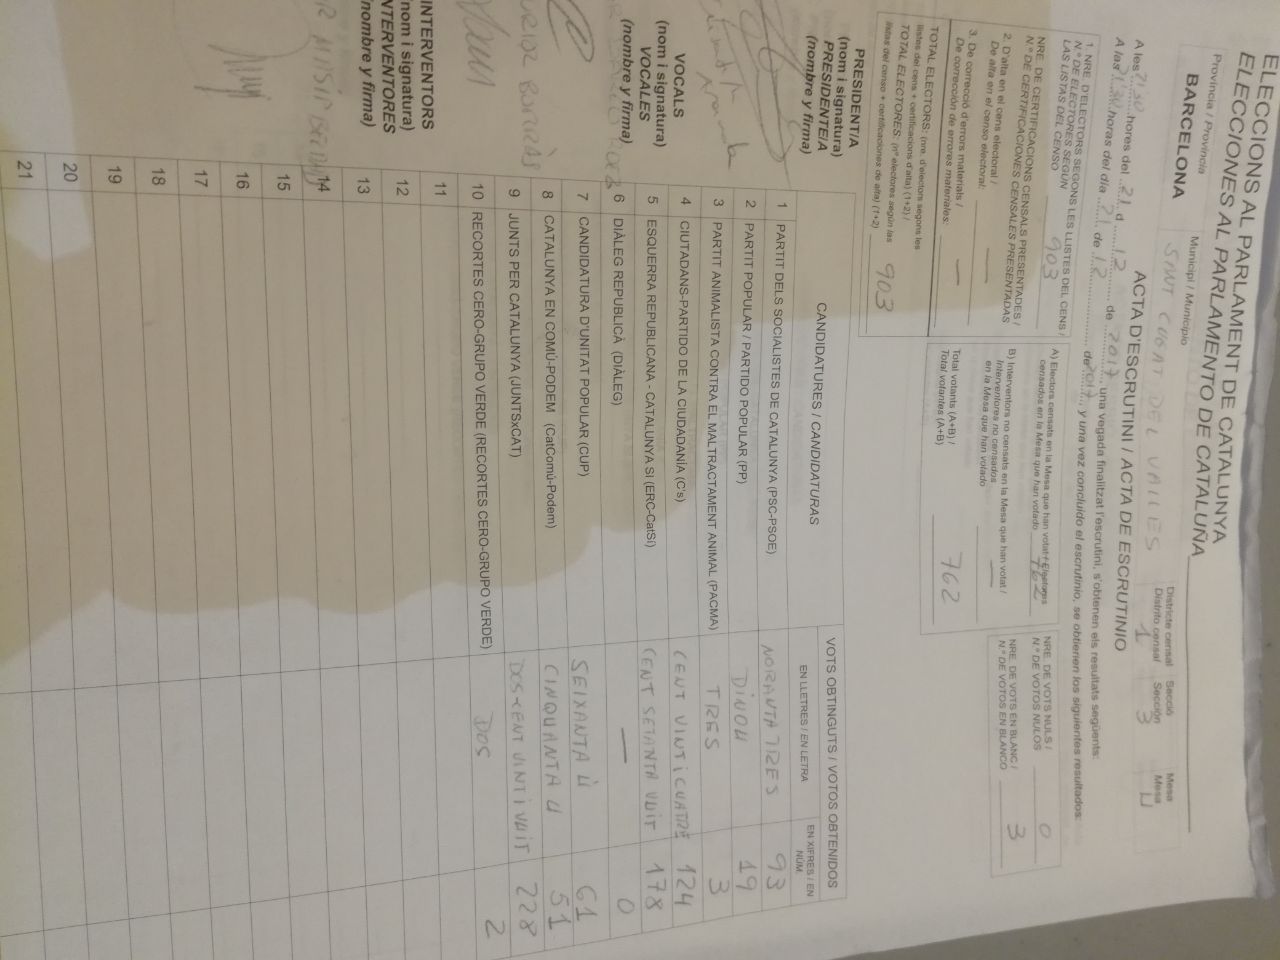 ELECCIONS AL PARLAMENT DE CATALUNYA
ELECCIONES AL PARLAMENTO DE CATALUÑA
Província / Provincia
BARCELONA
Municipi / Municipio
SANT CUGAT DEL VALLES
Districte censal
Distrito censal
1
Secció
Sección
3
Mesa
Mesa
U
ACTA D'ESCRUTINI / ACTA DE ESCRUTINIO
A les 21:30 hores del 21 d 12 de 2017, una vegada finalitzat l'escrutini, s'obtenen els resultats següents:
A las 21:30 horas del día 21 de 12 de 2017, y una vez concluido el escrutinio, se obtienen los siguientes resultados:
1. NRE. D'ELECTORS SEGONS LES LLISTES DEL CENS /
N.º DE ELECTORES SEGÚN
LAS LISTAS DEL CENSO
903
NRE. DE CERTIFICACIONS CENSALS PRESENTADES /
N.º DE CERTIFICACIONES CENSALES PRESENTADAS
2. D'alta en el cens electoral /
De alta en el censo electoral: —
3. De correcció d'errors materials /
De corrección de errores materiales: —
TOTAL ELECTORS: (nre. d'electors segons les
llistes del cens + certificacions d'alta) (1+2) /
TOTAL ELECTORES: (nº electores según las
listas del censo + certificaciones de alta) (1+2)
903
A) Electors censats en la Mesa que han votat / Electores
censados en la Mesa que han votado
762
B) Interventors no censats en la Mesa que han votat /
Interventores no censados
en la Mesa que han votado —
Total votants (A+B) /
Total votantes (A+B)
762
NRE. DE VOTS NULS /
N.º DE VOTOS NULOS
0
NRE. DE VOTS EN BLANC /
N.º DE VOTOS EN BLANCO
3
PRESIDENT/A
(nom i signatura)
PRESIDENTE/A
(nombre y firma)
VOCALS
(nom i signatura)
VOCALES
(nombre y firma)
INTERVENTORS
(nom i signatura)
INTERVENTORES
(nombre y firma)
CANDIDATURES / CANDIDATURAS
VOTS OBTINGUTS / VOTOS OBTENIDOS
EN LLETRES / EN LETRA
EN XIFRES / EN NÚM.
1 PARTIT DELS SOCIALISTES DE CATALUNYA (PSC-PSOE) NORANTA TRES 93
2 PARTIT POPULAR / PARTIDO POPULAR (PP) DINOU 19
3 PARTIT ANIMALISTA CONTRA EL MALTRACTAMENT ANIMAL (PACMA) TRES 3
4 CIUTADANS-PARTIDO DE LA CIUDADANÍA (C's) CENT VINTICUATRE 124
5 ESQUERRA REPUBLICANA - CATALUNYA SI (ERC-CatSí) CENT SETANTA VUIT 178
6 DIÀLEG REPUBLICÀ (DIÀLEG) — 0
7 CANDIDATURA D'UNITAT POPULAR (CUP) SEIXANTA U 61
8 CATALUNYA EN COMÚ-PODEM (CatComú-Podem) CINQUANTA U 51
9 JUNTS PER CATALUNYA (JUNTSxCAT) DOS-CENT VINTIVUIT 228
10 RECORTES CERO-GRUPO VERDE (RECORTES CERO-GRUPO VERDE) DOS 2
11
12
13
14
15
16
17
18
19
20
21